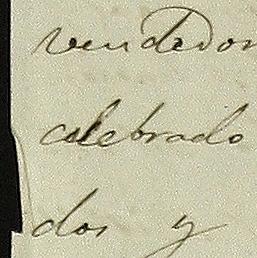 vendedor
celebrado
dos y